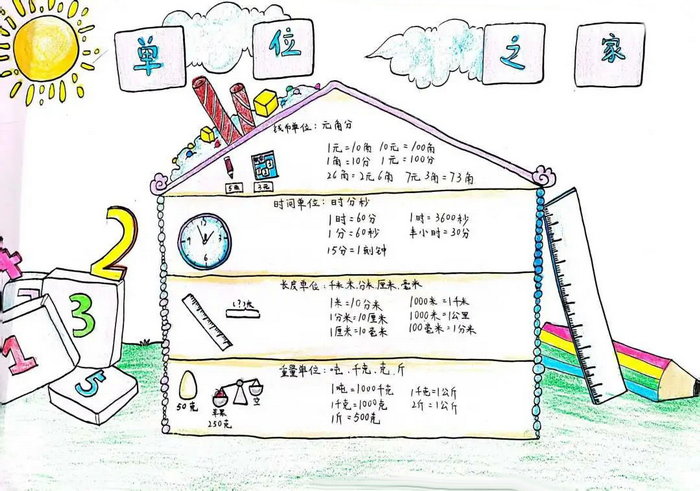 单位之家
钱币单位：元角分
1元=10角 10元=100角
1角=10分 1元=100分
26角=2元6角 7元3角=73角
5角 3元
时间单位：时分秒
1时=60分 1时=3600秒
1分=60秒 半小时=30分
15分=1刻钟
长度单位：千米.米.分米.厘米.毫米
1米=10分米 1000米=1千米
1分米=10厘米 1000米=1公里
1厘米=10毫米 100毫米=1分米
(?)米
重量单位：吨.千克.克.斤
1吨=1000千克 1千克=1公斤
1千克=1000克 2斤=1公斤
1斤=500克
50克
苹果
250克
空
2
3
1
5